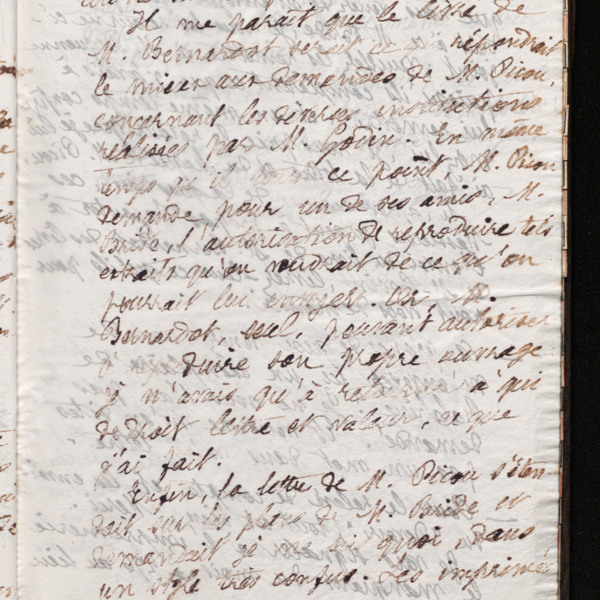 Il me paraît que le livre de
M. Bernardot serait ce qui répondrait
le mieux aux demandes de M. Picou,
concernant les diverses institutions
réalisées par M. Godin. En même
temps qu'il ce point, M. Picou
demande pour un de ses amis, M.
Bride, l'autorisation de reproduire tels
extraits qu'on voudrait de ce qu'on
pourrait lui envoyer. Or M.
Bernardot, seul, pouvant autoriser
à reproduire son propre ouvrage
je n'avais qu'à à qui
de droit lettre et valeur, ce que
j'ai fait.
Enfin, la lettre de M. Picou s'éten-
dait sur les plans de M. Bride et
demandait je ne sais quoi, dans
un style très confus. Les imprimés